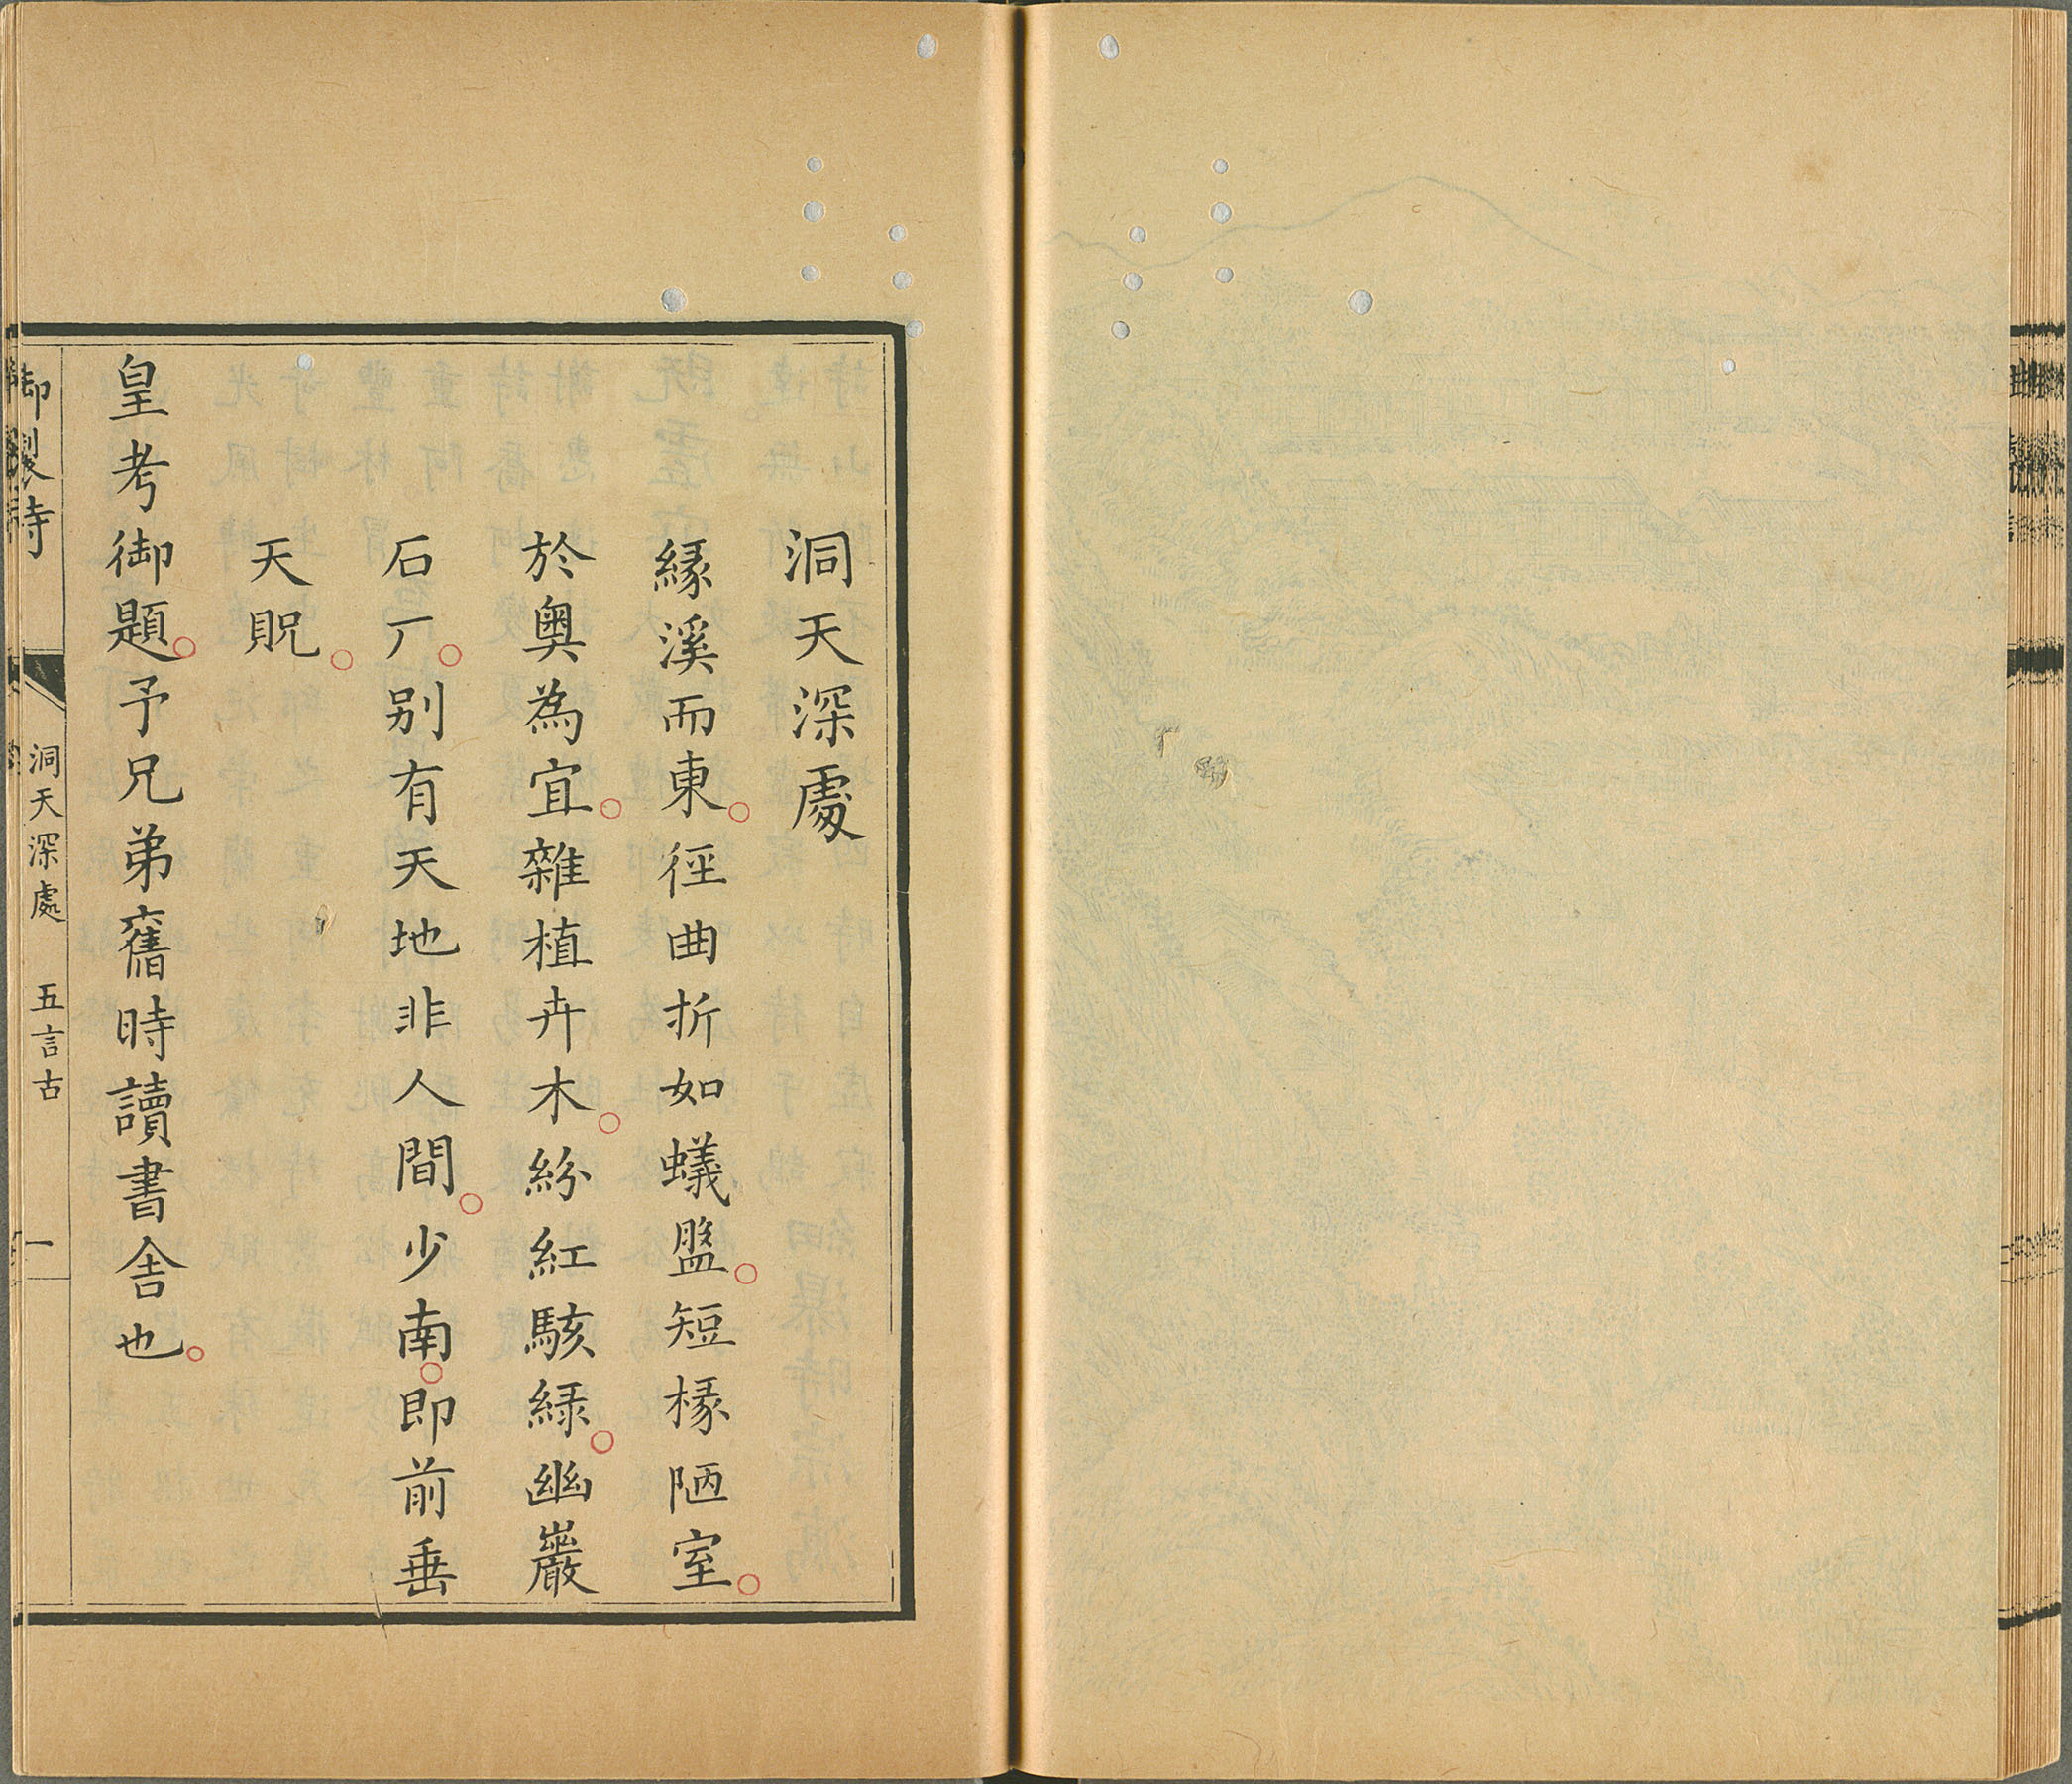 洞天深處
緣溪而東○徑曲折如蟻盤○短椽陋室○
於奧為宜○雜植卉木○紛紅駭綠○幽巖
石厂○別有天地非人間○少南○即前垂
天貺○
皇考御題○予兄弟舊時讀書舍也○
御製詩 洞天深處 五言古 一